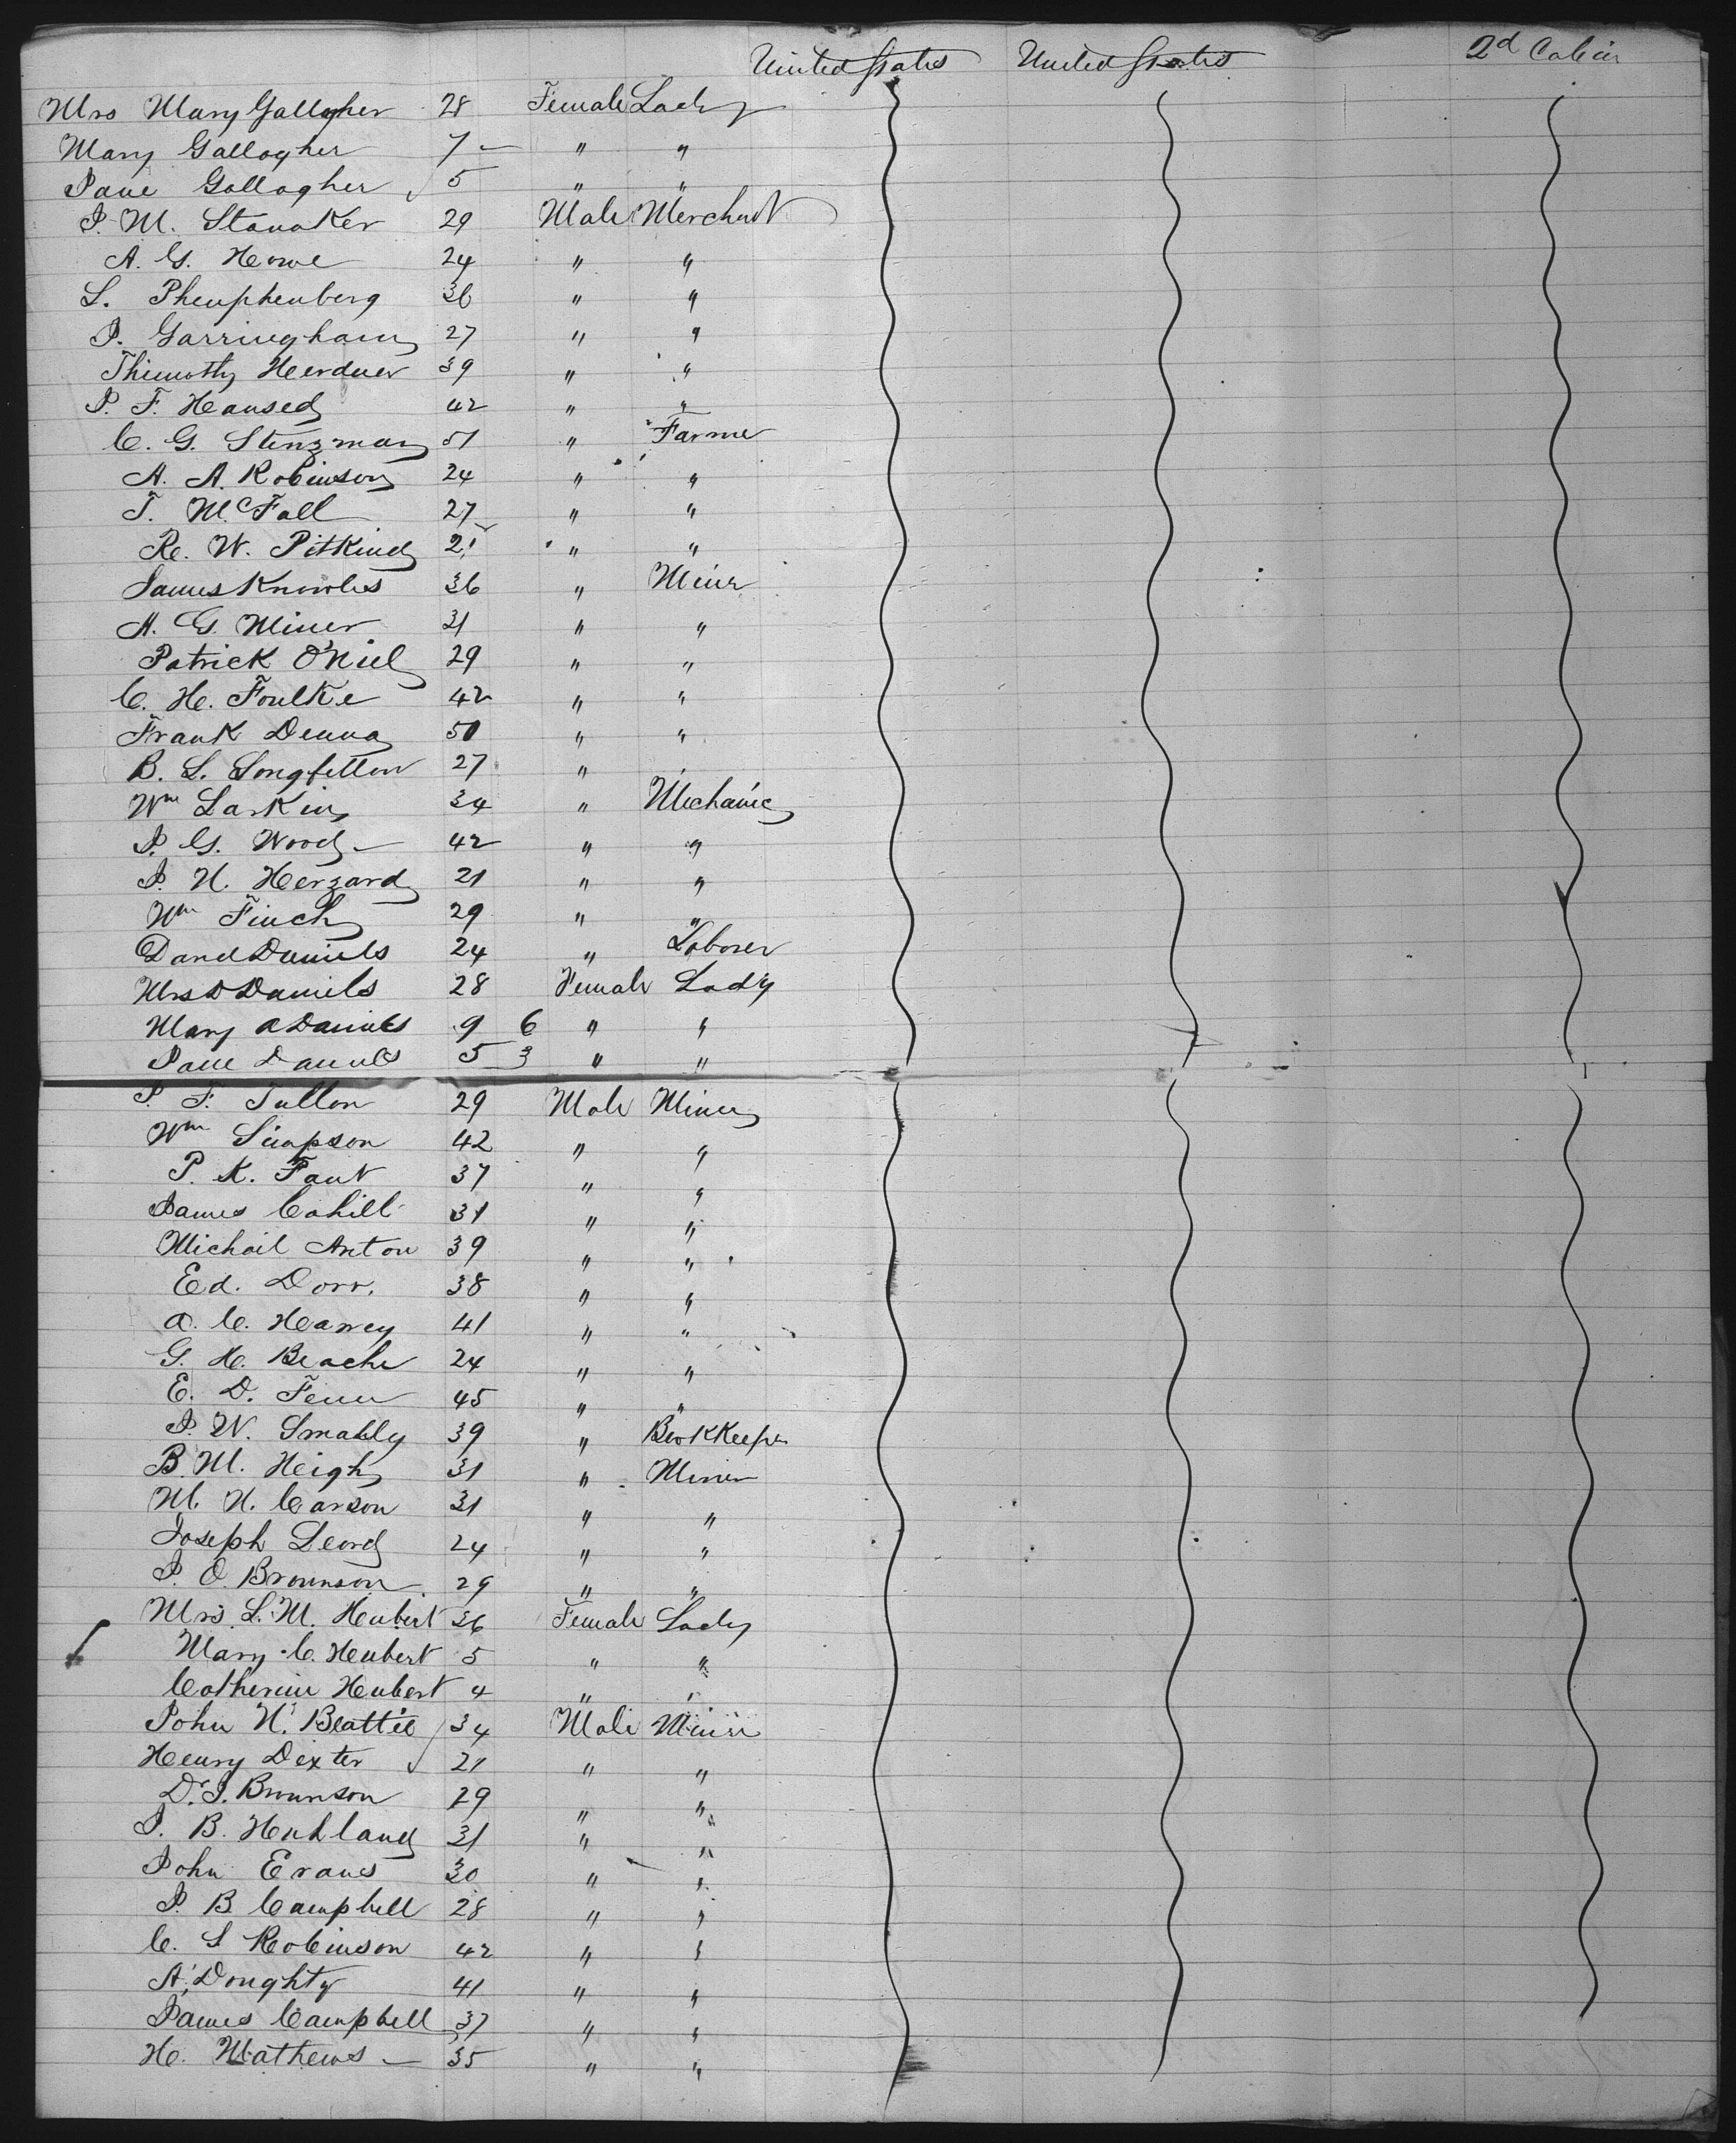 United States United States 2d Cabin
Mrs Mary Gallagher 28 Female Lady
Mary Gallagher 7 " "
Jane Gallagher 5 " "
J. M. Stanaker 29 Male Merchant
A. G. Howe 24 " "
L. Phemphenberg 36 " "
J. Garringham 27 " "
Thimothy Herdner 39 " "
J. F. Hansed 42 " "
C. G. Stenzman 51 " Farmer
A. A. Robinson 24 " "
T. McFall 27 " "
R. W. Pitkind 25 " "
James Knowles 36 " Miner
A. G. Miner 31 " "
Patrick O'Niel 29 " "
C. H. Foulke 42 " "
Frank Denna 50 " "
B. L. Longfellow 27 "
Wm Larkin 34 " Mechanic
J. G. Wood 42 " "
J. N. Herzard 21 " "
Wm Finch 29 " "
David Daniels 24 " Laborer
Mrs D Daniels 28 Female Lady
Mary A Daniels 9 6 " "
Jane Daniels 5 3 " "
P. F. Tullon 29 Male Miner
Wm Simpson 42 " "
P. K. Faut 37 " "
James Cahill 31 " "
Michail Anton 39 " "
Ed. Dorr. 38 " "
A. C. Harvey 41 " "
G. H. Beache 24 " "
E. D. Fenn 45 " "
J. W. Smahly 39 " Bookkeeper
B. M. Heigh 31 " Miner
M. N. Carson 31 " "
Joseph Leord 24 " "
J. O. Brownson 29 " "
Mrs L. M. Heubert 36 Female Lady
Mary C. Heubert 5 " "
Catherine Heubert 4 " "
John N. Beattie 34 Male Miner
Henry Dexter 21 " "
D. J. Brownson 29 " "
J. B. Huhland 31 " "
John Evans 30 " "
J. B. Campbell 28 " "
C. S Robinson 42 " "
A. Doughty 41 " "
James Campbell 37 " "
H. Mathews 35 " "